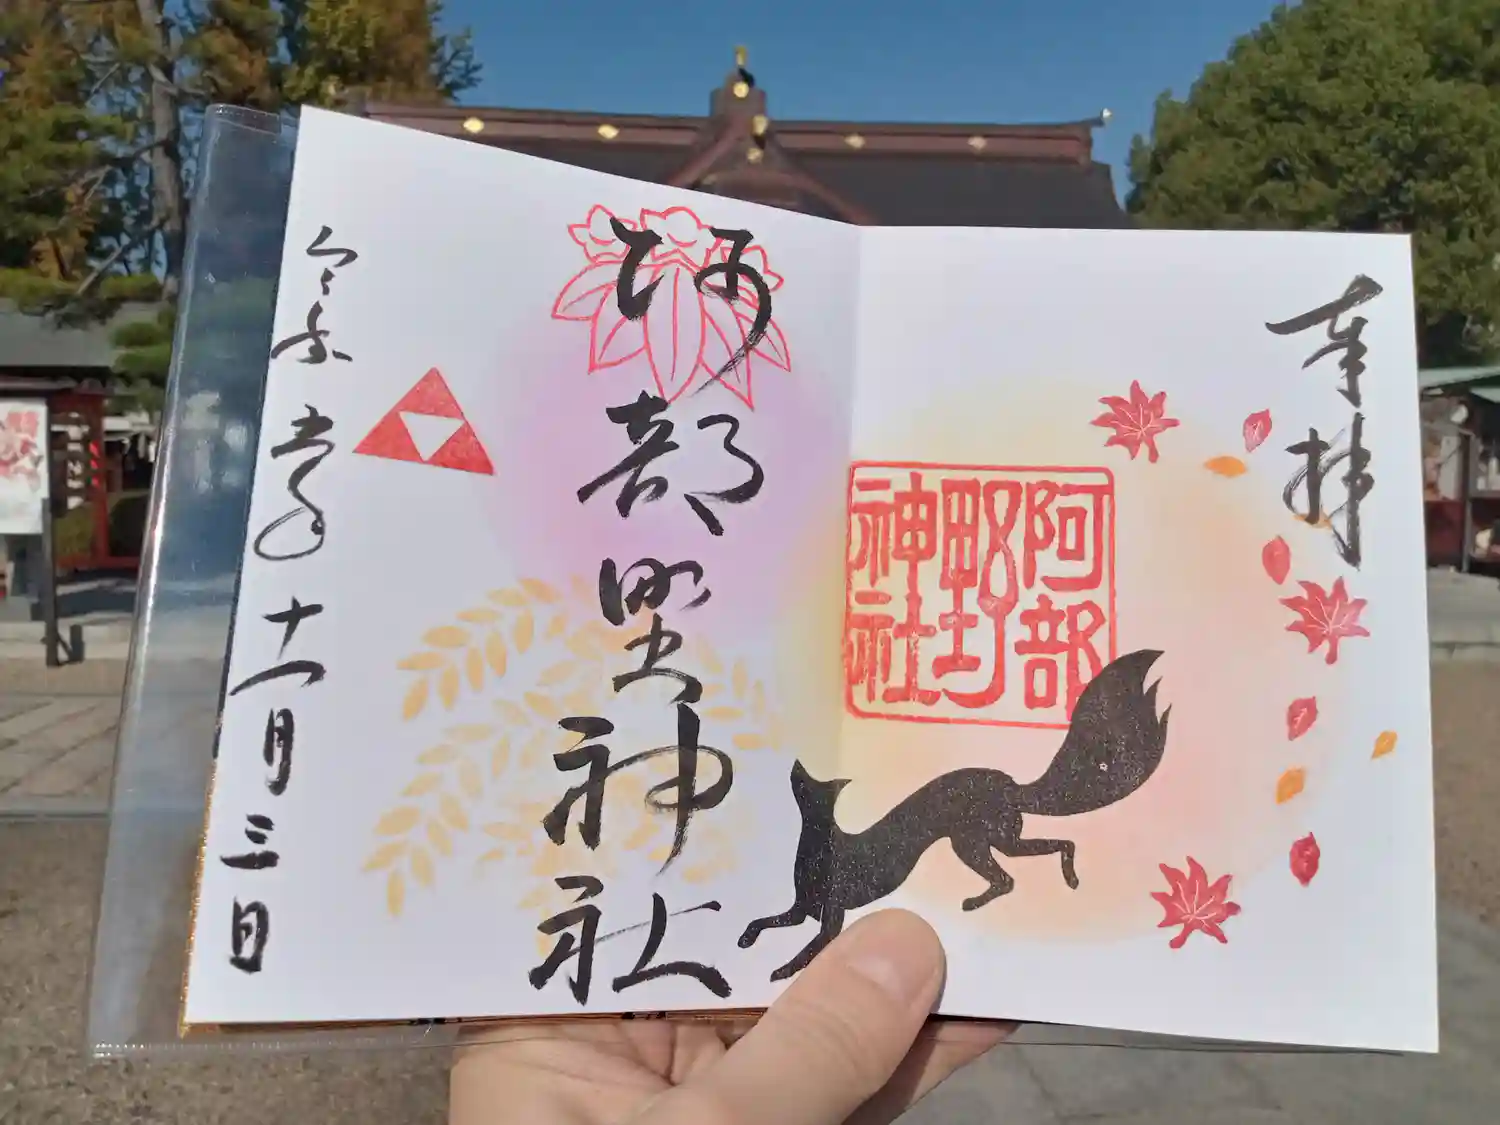 奉拝
阿部
野
神社
阿部野神社
令和六年十一月三日